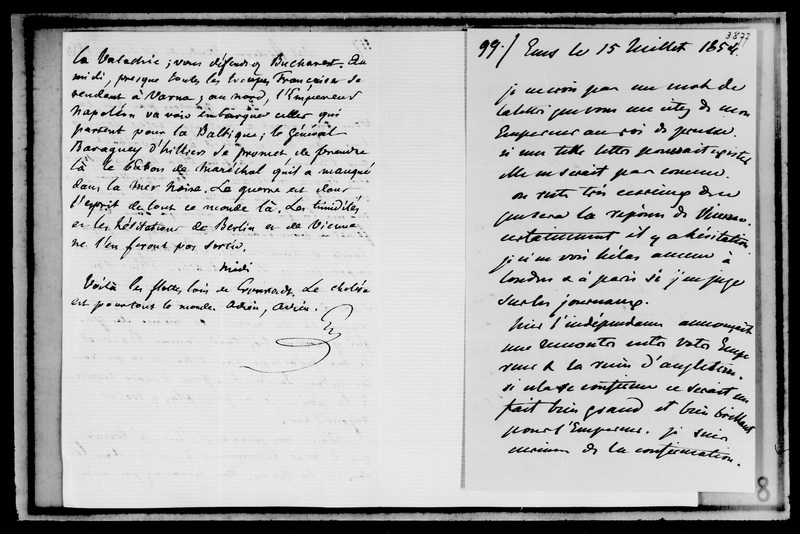 la Valachie ; vous défendez Bucharest. Au
midi, presque toutes les troupes Françaises se
rendent à Varna ; au nord, l'Empereur
Napoléon va voir embarquer celles qui
partent pour la Baltique ; le général
Baraguey d'hilliers se promet de prendre
là le bâton de maréchal qu'il a manqué
dans la mer noire. La guerre est dans
l'esprit de tout ce monde là. Les timidités
et les hésitations de Berlin et de Vienne
ne l'en feront pas sortir.
Midi
Voilà les flottes loin de Cronstadt. Le choléra
est pourtant le monde. Adieu, adieu.
3877
99./ Ems le 15 Juillet 1854.
je ne crois pas un mot de
la lettre que vous me citez de mon
Empereur au roi de prusse.
si une telle lettre pouvait exister
elle ne serait pas connue.
on reste très curieux de ce
que sera la réponse de Vienne.
certainement il y a hésitation
je n'en vois hélas aucune à
Londres et à paris si j'en juge
sur les journaux.
hier l'indépendance annonçait
une rencontre entre votre Empe
reur & la reine d'angleterre.
si cela se confirme ce serait un
fait bien grand et bien brillant
pour l'Empereur. je suis
curieuse de la confirmation.
8